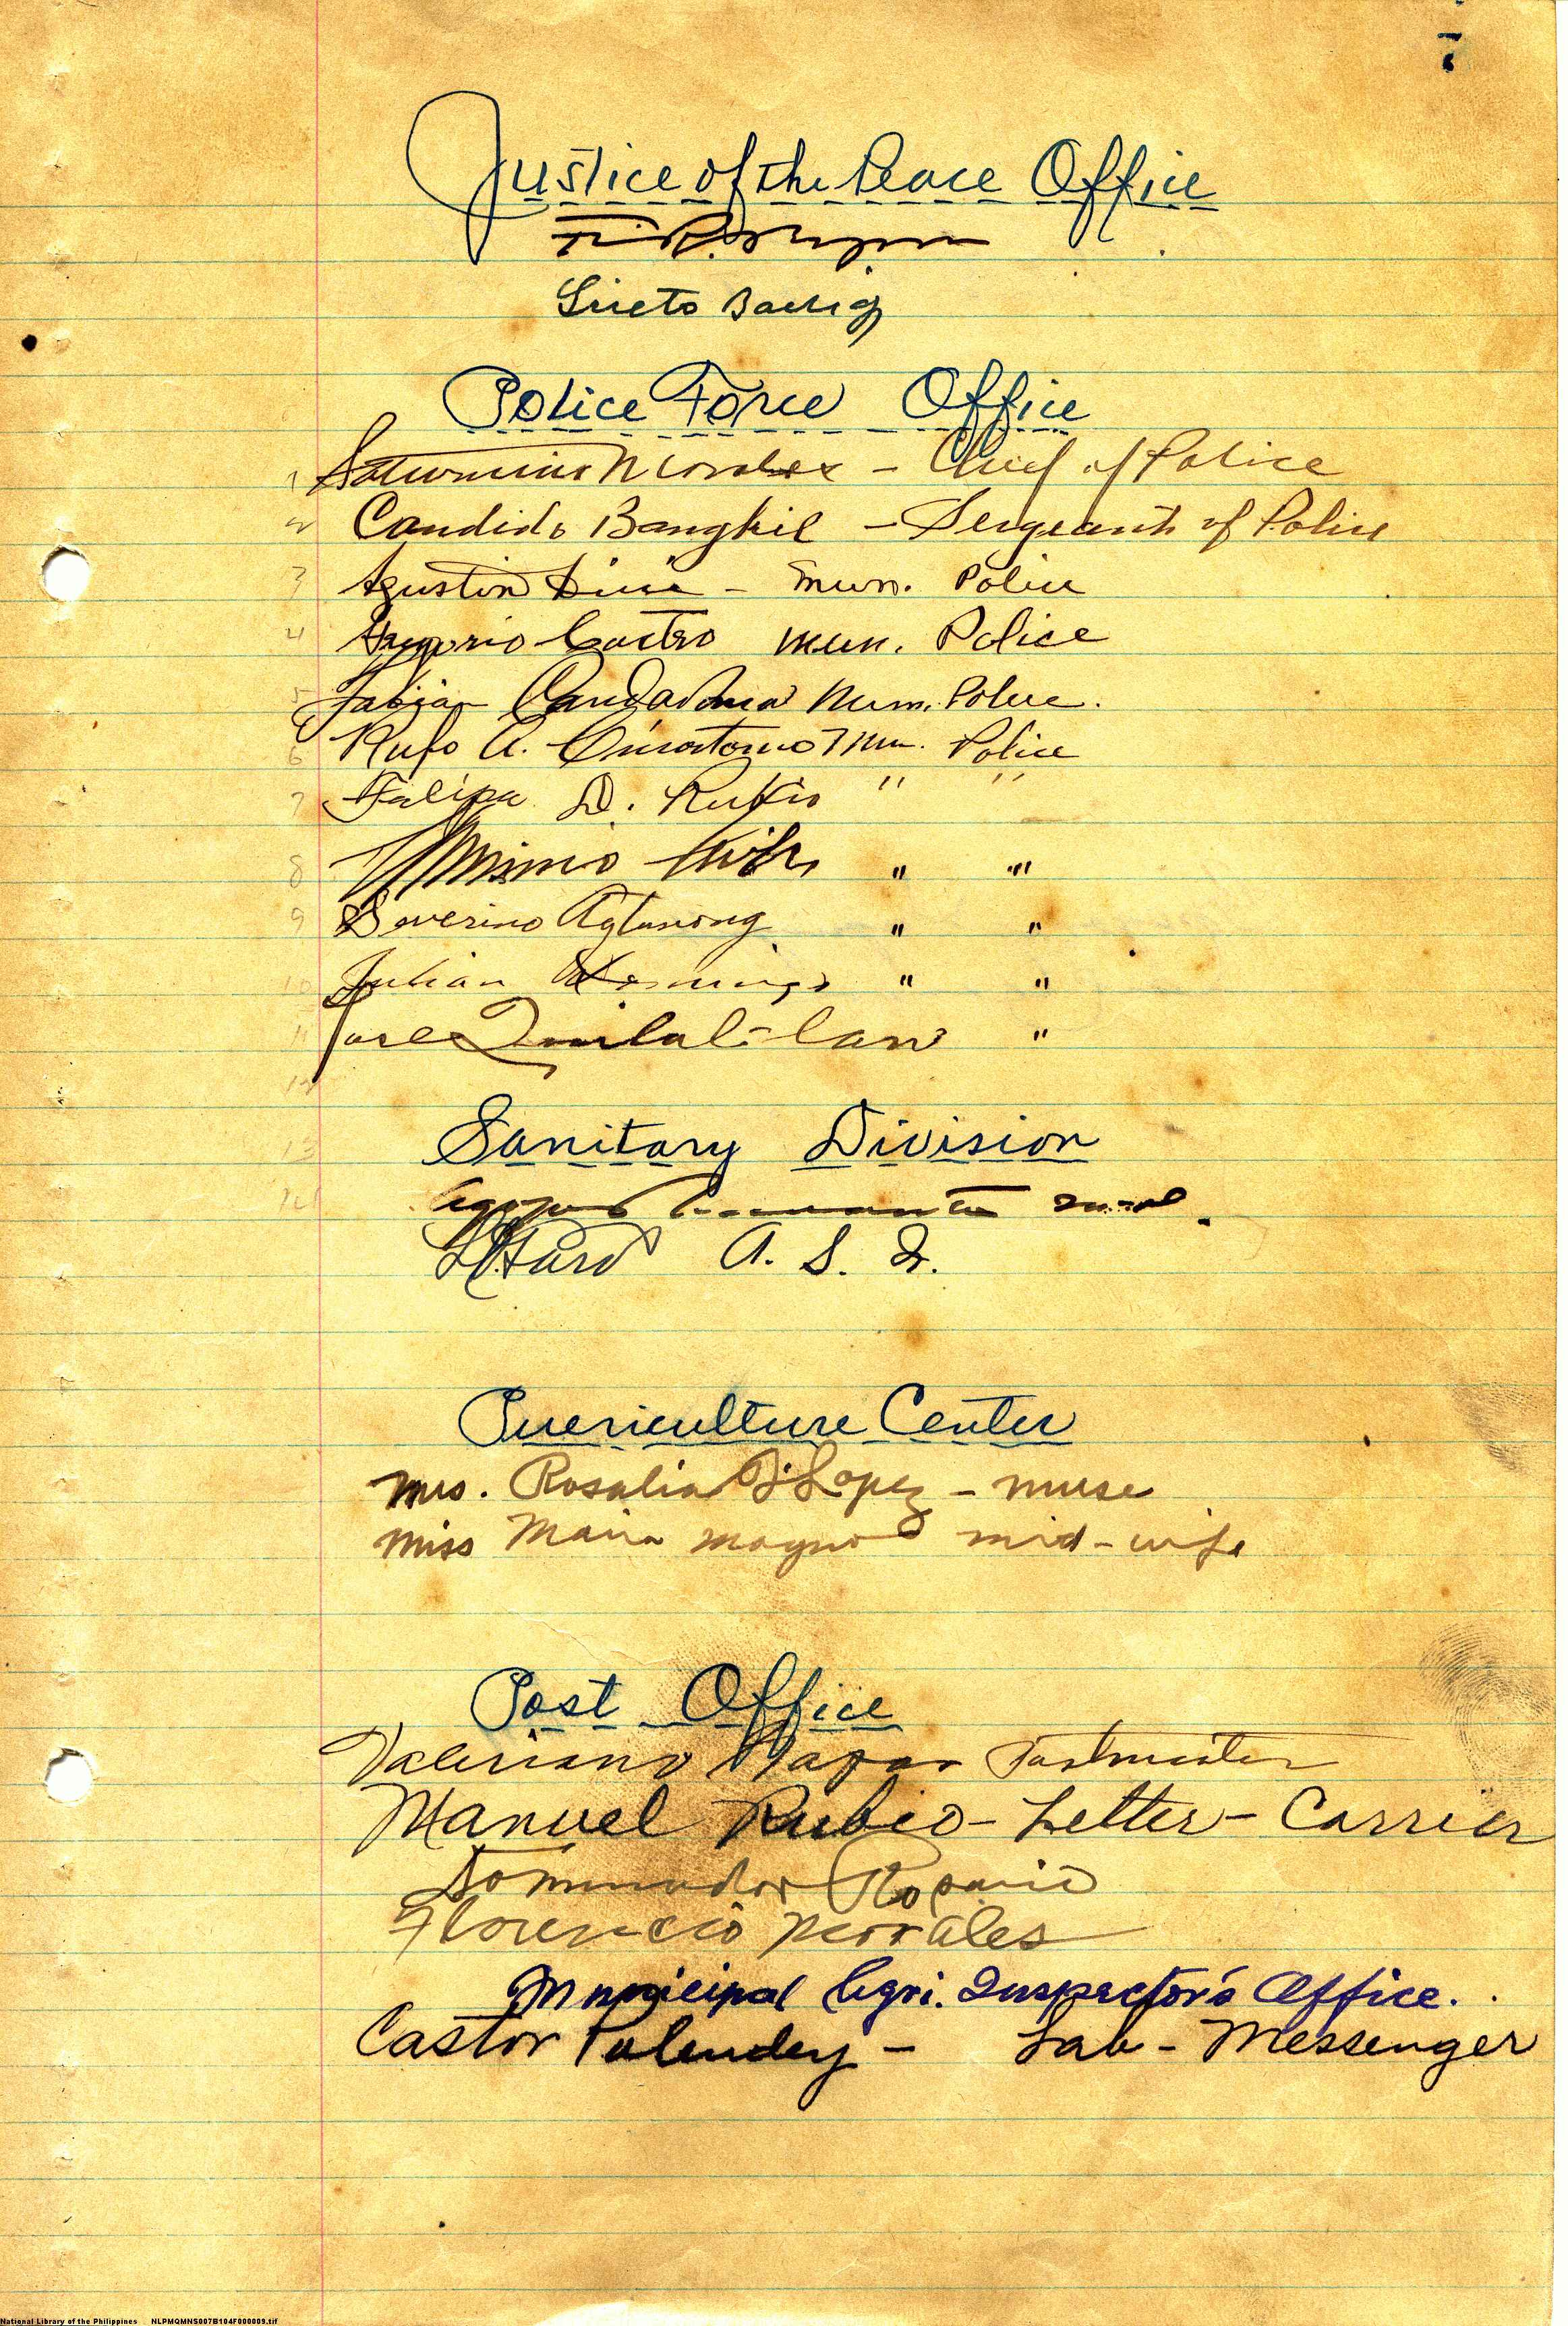 7
Justice of the Peace Office
Police Force Office
1 Saturnino Morales - Chief of Police
2 Candido Bangkil - Sergeant of Police
3 Agustin - Mun. Police
4 Gregorio Castro Mun. Police
5 Fabian Mun. Police.
6 Rufo A. Crisostomo Mun. Police
7 Felipe D. Rufio " "
8 " "
9 Severino Aglanong " "
10 Julian Domingo " "
11 Jose "
12
13 Sanitary Division
14
A. S. I.
Puericulture Center
Mrs. Rosalia Lopez - nurse
Miss Maria Magno mid-wife
Post Office
Valeriano Postmaster
Manuel Rubio - Letter - Carrier
Florencio Morales
Municipal Agri. Inspector's Office.
Castor - Lab - Messenger
National Library of the Philippines NLPMQMNS007B104F000009.tif